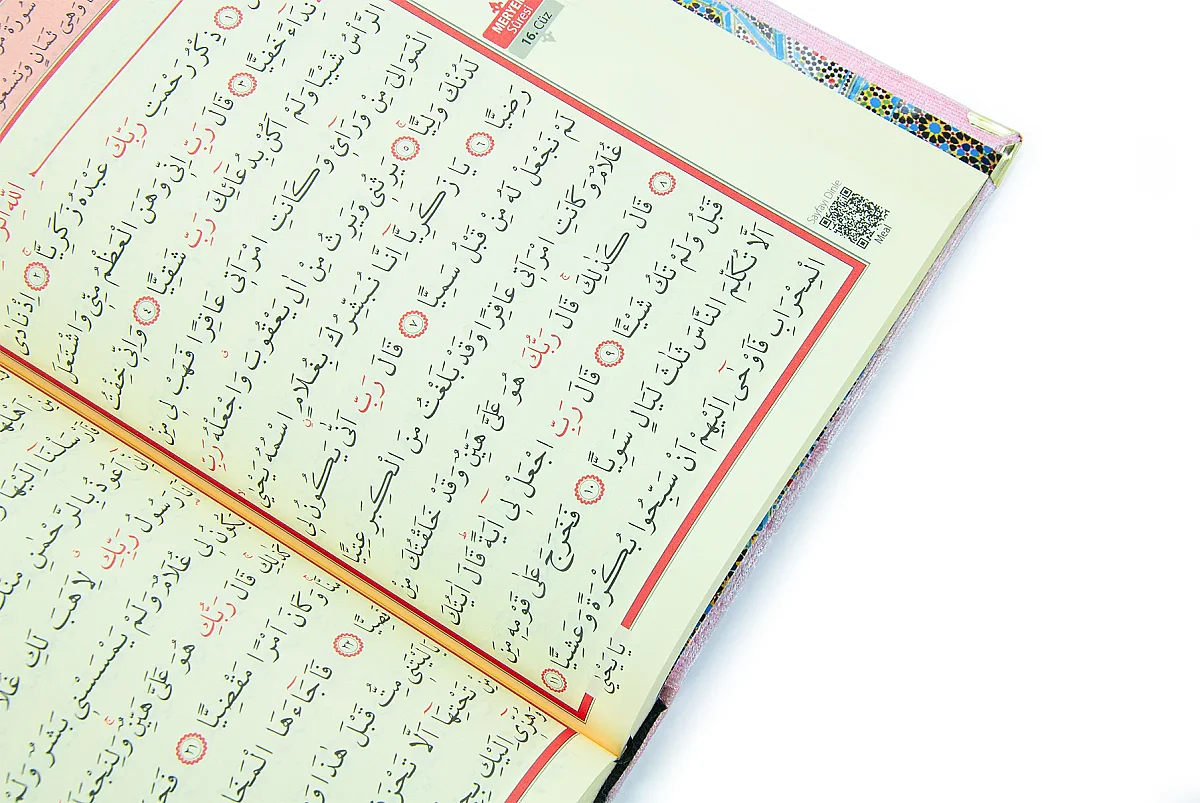 MERYEM
Sûresi
16. Cüz
١
ذِكْرُ رَحْمَتِ رَبِّكَ عَبْدَهُ زَكَرِيَّا ٢ اِذْ نَادٰى
نِدَٓاءً خَفِيًّا ٣ قَالَ رَبِّ اِنّٖى وَهَنَ الْعَظْمُ مِنّٖى وَاشْتَعَلَ
الرَّاْسُ شَيْبًا وَلَمْ اَكُنْ بِدُعَٓائِكَ رَبِّ شَقِيًّا ٤ وَاِنّٖى خِفْتُ
الْمَوَالِىَ مِنْ وَرَٓائٖى وَكَانَتِ امْرَاَتٖى عَاقِرًا فَهَبْ لٖى مِنْ
لَدُنْكَ وَلِيًّا ٥ يَرِثُنٖى وَيَرِثُ مِنْ اٰلِ يَعْقُوبَ وَاجْعَلْهُ رَبِّ
رَضِيًّا ٦ يَا زَكَرِيَّٓا اِنَّا نُبَشِّرُكَ بِغُلَامٍ اسْمُهُ يَحْيٰى
لَمْ نَجْعَلْ لَهُ مِنْ قَبْلُ سَمِيًّا ٧ قَالَ رَبِّ اَنّٰى يَكُونُ لٖى
غُلَامٌ وَكَانَتِ امْرَاَتٖى عَاقِرًا وَقَدْ بَلَغْتُ مِنَ الْكِبَرِ عِتِيًّا
٨ قَالَ كَذٰلِكَ قَالَ رَبُّكَ هُوَ عَلَىَّ هَيِّنٌ وَقَدْ خَلَقْتُكَ مِنْ
قَبْلُ وَلَمْ تَكُ شَيْـًٔا ٩ قَالَ رَبِّ اجْعَلْ لٖٓى اٰيَةً قَالَ اٰيَتُكَ
اَلَّا تُكَلِّمَ النَّاسَ ثَلٰثَ لَيَالٍ سَوِيًّا ١٠ فَخَرَجَ عَلٰى قَوْمِهٖ مِنَ
الْمِحْرَابِ فَاَوْحٰٓى اِلَيْهِمْ اَنْ سَبِّحُوا بُكْرَةً وَعَشِيًّا ١١
يَا يَحْيٰى
Sayfayı Dinle
Meal
فَاَرْسَلْنَٓا اِلَيْهَا
اَعُوذُ بِالرَّحْمٰنِ مِنْكَ
رَسُولُ رَبِّكِ لِاَهَبَ لَكِ
يَكُونُ لٖى غُلَامٌ وَلَمْ يَمْسَسْنٖى بَشَرٌ وَلَمْ
كَذٰلِكِ قَالَ رَبُّكِ هُوَ عَلَىَّ هَيِّنٌ وَلِنَجْعَلَهُ
وَكَانَ اَمْرًا مَقْضِيًّا ٢١
قَصِيًّا ٢٢ فَاَجَٓاءَهَا
يَا لَيْتَنٖى مِتُّ قَبْلَ هٰذَا
تَحْتِهَٓا اَلَّا تَحْزَنٖى
وَهُزّٖٓى اِلَيْكِ